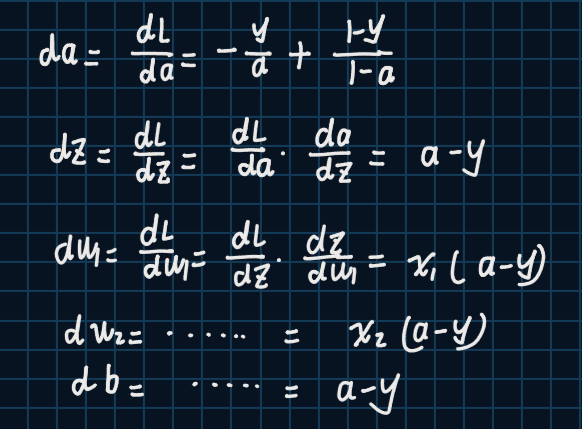 da = dL/da = - y/a + (1-y)/(1-a)
dz = dL/dz = dL/da · da/dz = a-y
dw₁ = dL/dw₁ = dL/dz · dz/dw₁ = x₁(a-y)
dw₂ = ······ = x₂(a-y)
db = ····· = a-y